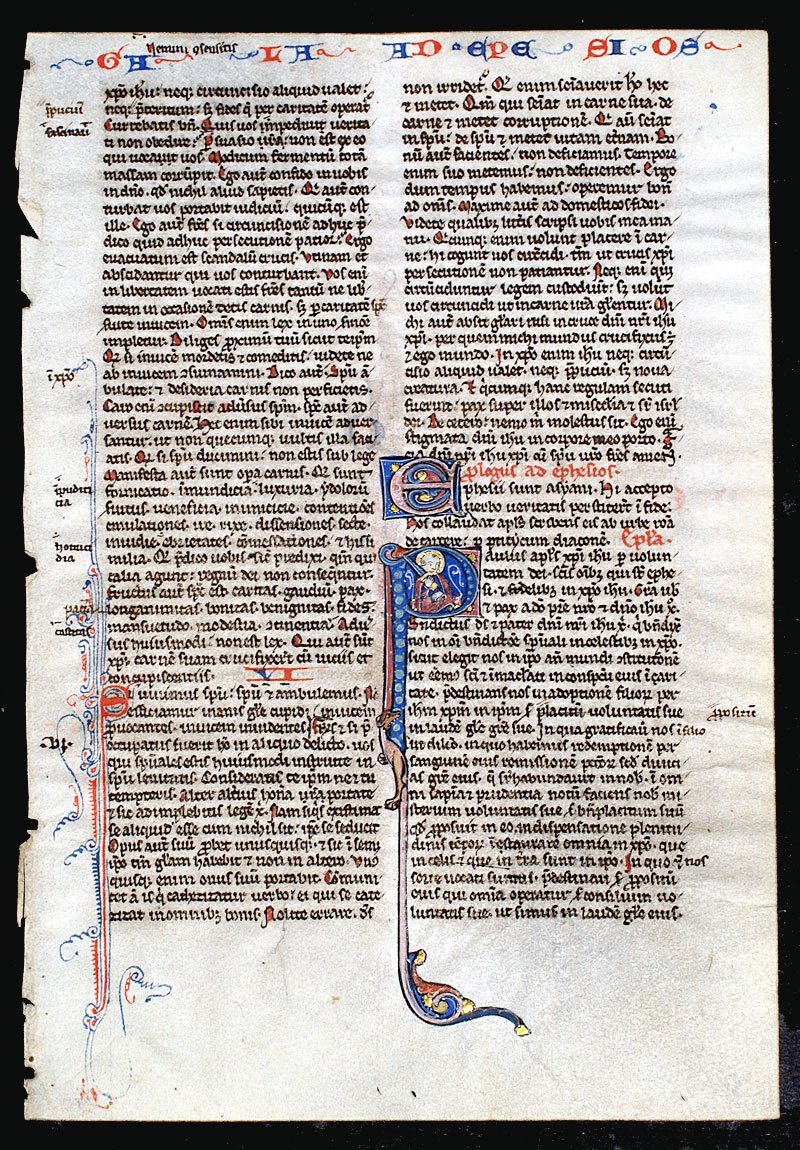 GA LA AD EPE SI OS
xp̄o ihū: neq; circuncisio aliquid ualet:
neq; p̄teritum: s; fides q̄ per caritatē operat̄
Currebatis bn̄. Quis uos impediuit uerita
ti non obedire? Suasio ur̄a: non est ex eo
qui uocauit uos. Modicum fermentū totā
massam corrūpit. Ego autē confido in uobis
in dn̄o. qd̄ nichil aliud sapietis. Qi autē con
turbat uos portabit iudiciū. quicūq; est
ille. Ego autē fr̄es si circuncisionē adhuc p̄
dico quid adhuc persecutionē patior? Ergo
euacuatum est scandalū crucis. Vtinam et
abscidantur qui uos conturbant. Vos eni
in libertatem uocati estis fr̄es tantū ne lib
tatem in occasionē detis carnis. s; p caritatē sp̄c
seruite inuicem. Omīs enim lex in uno sermōe
impletur. Diliges proximū tuū sicut teipm̄
Qi si inuicē mordetis et comeditis: uidete ne
ab inuicem consumamini. Dico autē. Spū am
bulate: et desideria carnis non perficietis.
Caro enī concupiscit aduersus spm̄. spc̄ autē ad
uersus carnē. Hec enim sibi inuicē aduer
santur. ut non quecumq; uultis illa faci
atis. Qi si spū ducimini: non estis sub lege
Manifesta autē sunt opa carnis. Qe sunt
fornicatio. immundicia. luxuria. ydolorū
seruitus. ueneficia. inimicicie. contentiōes
emulationes. ire. rixe. dissensiones. secte.
inuidie. ebrietates. comessationes. et his si
milia. Qe p̄dico uobis sic̄ predixi. qm̄ qui
talia agunt: regnū dei non consequentur.
fructus autē spc̄ est caritas. gaudiū. pax.
longanimitas. bonitas. benignitas. fides.
mansuetudo. modestia. continentia. Aduer
sus huiusmodi: non est lex. Qui autē sūt
xp̄i: carnē suam crucifixerūt cū uiciis et
concupiscentiis. VI
Si uiuimus spū: spū et ambulemus. Nō
efficiamur inanis gl̄e cupidi. inuicem
prouocantes. inuicem inuidentes. Fr̄es et si p̄
occupatus fuerit hō in aliquo delicto. uos
qui spūales estis huiusmodi instruite in
spū lenitatis. Considerans teipm̄ ne et tu
tempteris. Alter altius honera portate
et sic adimplebitis legē x̄. Nam siqs existimat
se aliquid esse cum nichil sit: ip̄e se seducit
Opus autē suū probet unusquisq; et sic in sem
ipō tm̄ glam habebit et non in altero. Vnus
quisq; enim onus suū portabit. Communi
cet autē is qui cathezizatur uerbo: ei qui se cathe
zizat in omnibz bonis. Nolite errare. ds̄
non irridet̄. Qe enim seīauerit hō hec
et metet. Qm̄ qui seīat in carne sua. de
carne et metet corruptionē. Qi aū seīat
in spū: de spū et metet uitam etnam. Bo
nū autē facientes: non deficiamus. Tempore
enim suo metemus: non deficientes. Ergo
dum tempus habemus: operemur bonū
ad oms̄. Maxime autē ad domesticos fidei.
Videte qualibz litt̄is scripsi uobis mea ma
nu. Qicunq; enim uolunt placere in car
ne: hi cogunt uos circūcidi. tm̄ ut crucis xp̄i
persecutionē non patiantur. Neq; enī qui
circūciduntur legem custodiūt: s; uolūt
uos circuncidi ut in carne ur̄a gl̄entur. Mi
chi autē absit gl̄ari nisi in cruce dn̄i nr̄i ihū
xp̄i. per quem michi mundus crucifixus ē
et ego mundo. In xp̄o enim ihū neq; circū
cisio aliquid ualet. neq; p̄puciū. s; noua
creatura. Et quicumq; hanc regulam secuti
fuerint: pax super illos et misc̄dia et sr̄ isrl̄
dei. De cetero: nemo m̄ molestus sit. Ego enī
stigmata dn̄i ihū in corpore meo porto. Gr̄a
dn̄i nr̄i ihū xp̄i cū spū ur̄o fr̄es amen.
Prologus ad ephesios.
Ephesii sunt asyani. Hi accepto
uerbo ueritatis perstiterūt ī fide.
Hos collaudat apls̄ scribens eis ab urbe roā
de carcere: p titycum diaconē. Epl̄a.
Paulus apls̄ xp̄i ihū p uolun
tatem dei. scīs oībz qui st̄ ephe
si. et fidelibz in xp̄o ihū. Gr̄a ub̄
et pax a dō pr̄e nr̄o et dn̄o ihū x̄.
Bn̄dictus ds̄ et pater dn̄i nr̄i ihū x̄. q bn̄dix̄
nos in om̄i bn̄dictōe spūali in celestibz in xp̄o.
sicut elegit nos in ip̄o añ mundi cōstitutōnē
ut eem̄ sc̄i et imaclati in conspcū eius ī cari
tate. p̄destinans nos in adoptionē filiorū per
ihm̄ xp̄m in ip̄m s; placitū uoluntatis sue
in laudē gl̄e gr̄e sue. In qua gratificauit nos ī filio
suo dilc̄o. in quo habemus redemptionē per
sanguinē eius remissionē pcc̄orū scd̄ diuici
as gr̄e eius. q sup̄habundauit in nobis ī om
ni sapiīa et prudentia notū faciens nob̄ mi
sterium uoluntatis sue. s; bn̄placitum suū
qd̄ proposuit in eo. in dispensatione plenitu
dinis tēporū restaurare omnia in xp̄o. que
in celis et que in t̄ra sunt in ip̄o. In quo et nos
sorte uocati sumus. p̄destinati s; propositū
eius qui omīa operatur s; consilium uo
luntatis sue. ut simus in laudē gl̄e eius.
ī xp̄o
īpudici
cia
casteitas
p̄positum